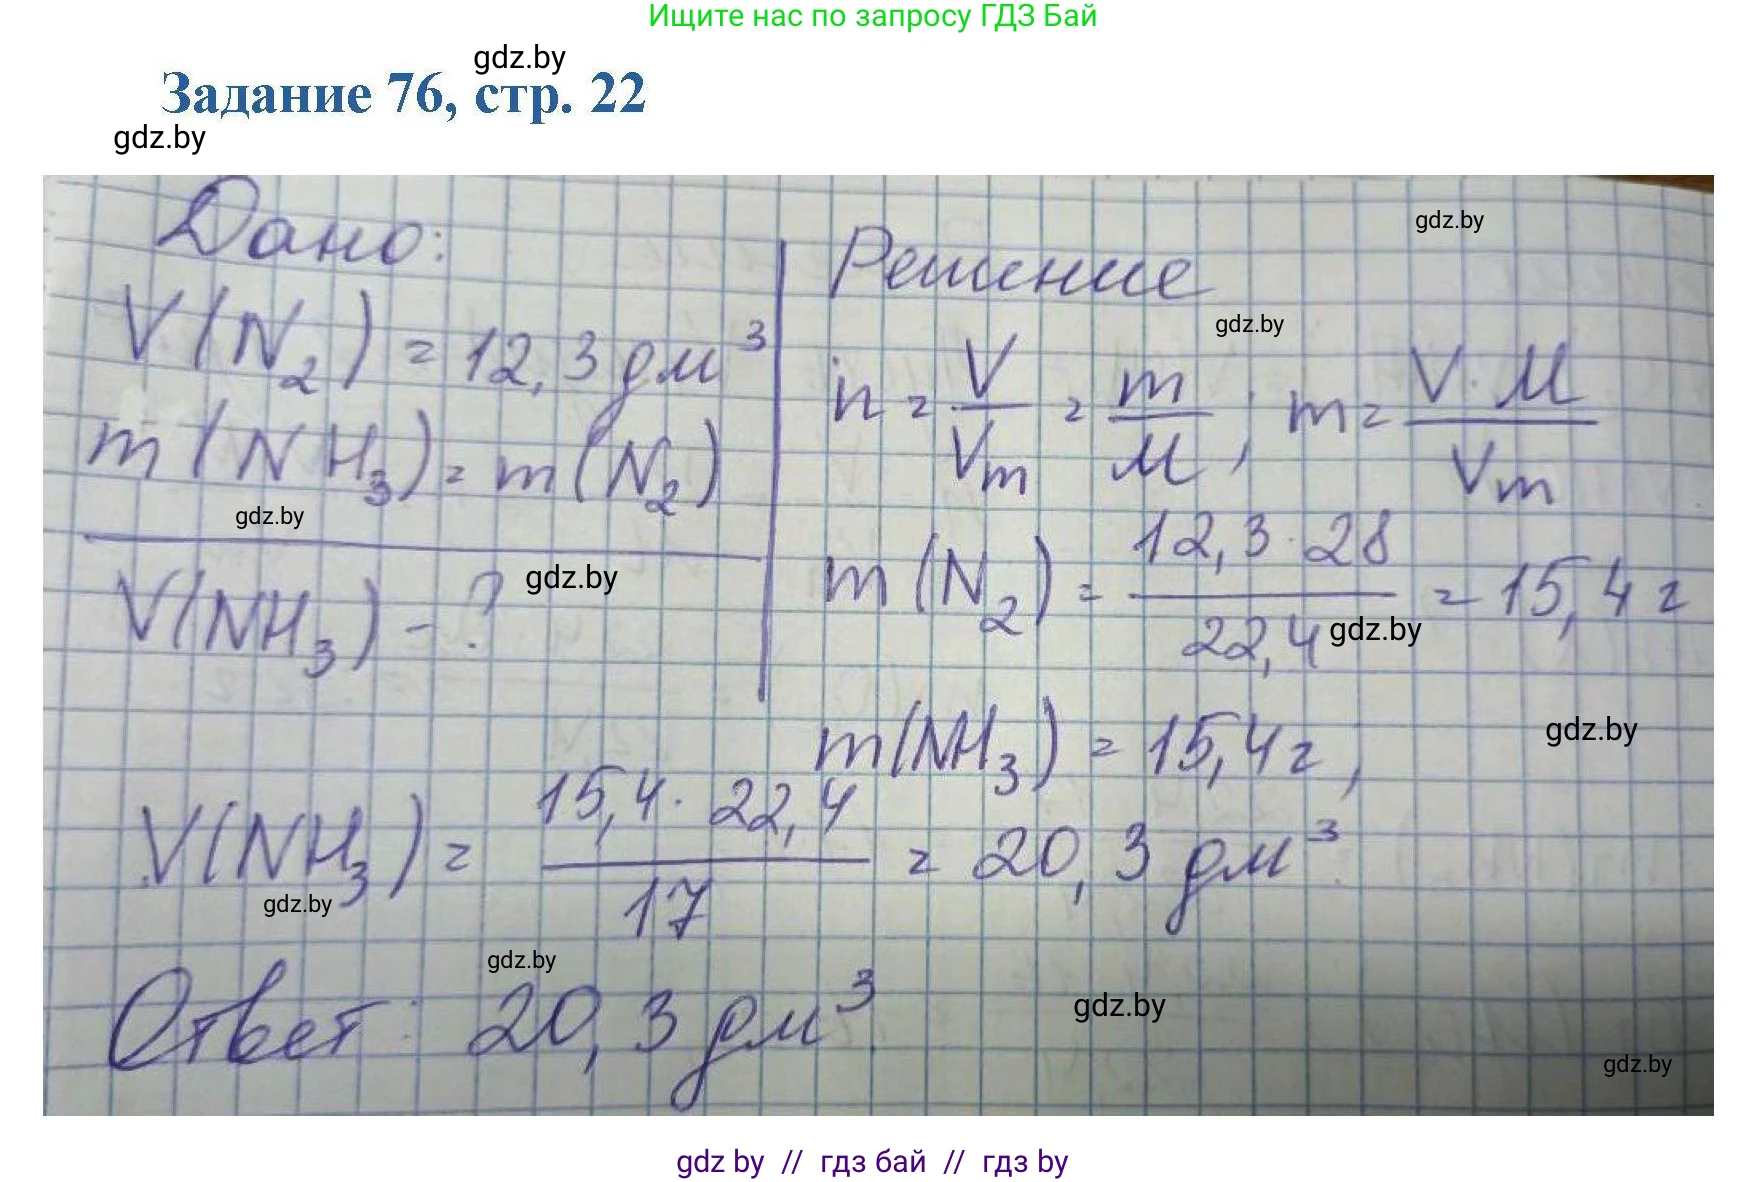 Ищите нас по запросу ГДЗ Бай
gdz.by
Задание 76, стр. 22
gdz.by
Дано:
V(N₂) = 12,3 дм³
m(NH₃) = m(N₂)
gdz.by
V(NH₃) - ?
gdz.by
gdz.by
Решение
gdz.by
n = V/Vm = m/M; m = V·M/Vm
m(N₂) = 12,3·28/22,4 = 15,4 г
gdz.by
m(NH₃) = 15,4 г,
gdz.by
V(NH₃) = 15,4·22,4/17 = 20,3 дм³.
gdz.by
gdz.by
Ответ: 20,3 дм³.
gdz.by
gdz.by
gdz by // гдз бай // гдз by